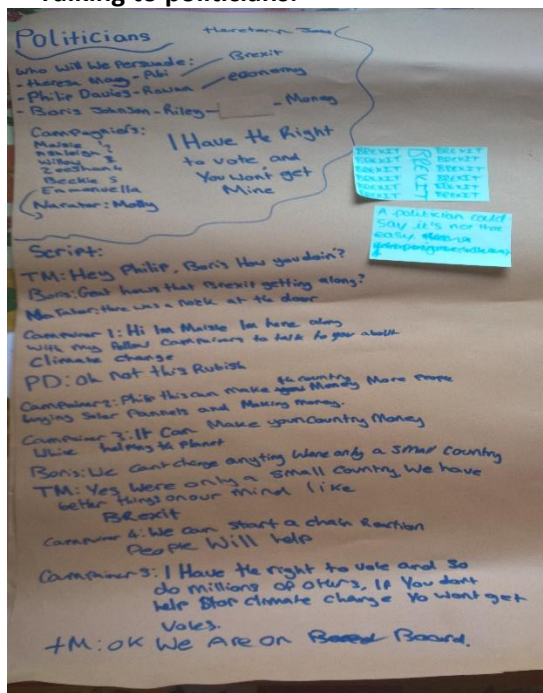 Talking to politicians:
Politicians
Who Will We Persuade:
-theresa May - Abi - Brexit
-Philip Davies - Rowan - economy
-Boris Johnson - Riley - Money
Campagniers:
Maisie 1
Ashleigh 2
Willow 3
Zeeshan 4
Beckie 5
Emmanuella
Narator: Molly
I Have the Right
to vote, and
You Wont get
Mine
BREXIT BREXIT
BREXIT BREXIT
BREXIT BREXIT
BREXIT BREXIT
BREXIT BREXIT
BREXIT
A politician could
say it's not that
easy
Script:
TM: Hey Philip, Boris How you doin?
Boris: Great hows that Brexit getting along?
Narator: there was a nock at the door
Campainer 1: Hi Im Maisie Im here along
With my fellow Campainers to talk to you about
Climate change
PD: oh not this Rubish
Campainer 2: Philip this can make the country Money More People
buying Solar Pannels and Making Money.
Campainer 3: It Can Make your Country Money
While helping the Planet
Boris: We Cant change anyting Were only a Small Country
TM: Yes Were only a Small Country, We have
better things on our mind like
BRexit
Campainer 4: We can Start a chain Reaction
People Will help
Campainer 5: I Have the right to vote and So
do millions of others, If You dont
help Stop climate change Yo Wont get
Votes.
TM: OK We Are on Board.